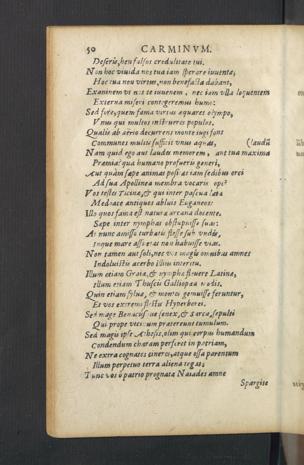 50 CARMINVM.
Deseris, heu falsos credulitate tui.
Non hoc viuida nos tua iam sperare iuuenta,
Hoc tua nec virtus, non benefacta dabant,
Exanimem vt nos te iuuenem, nec iam vlla loquentem
Externa miseri contegeremus humo:
Sed fore, quem fama virtus æquaret olympo,
Vnus qui multos instrueres populos,
Qualis ab aërio decurrens monte iugi fons
Communes multis sufficit vnus aquas,
(laudū
Nam quid ego aut laudis memorem, aut tua maxima
Præmia? quæ humano profueris generi,
Aut quàm sæpe animas positas iam sedibus orci
Ad sua Apollinea membra vocaris ope?
Vos testes Ticine, & qui inter pascua læta
Medoace antiquos abluis Euganeos:
Illo quos fama est naturæ arcana docente.
Sæpe inter nymphas obstupuisse suas:
At nunc amisso turbatis flesse sub vndis,
Inque mare assuetas non habuisse vias.
Non tamen aut soli, nec vos magis omnibus amnes
Indoluistis acerbo illius interitu.
Illum etiam Graiæ, & nymphæ fleuere Latinæ,
Illum etiam Thuscis Galliopæa
Quin etiam syluæ, & montes genuisse feruntur,
Et vos extremi Hyperborei.
Sed mage Benacus senex, & sarca, sepulti
Qui prope vicinum prætereunt tumulum.
Sed magis ipse Athesis, olim qui corpus humandum
Condendum charam perferet in patriam,
Ne extra cognatos cineres, atque ossa parentum
Illum perpetuo terra aliena tegat;
Tunc vos ô patrio prognatæ Naiades amne
Spargite